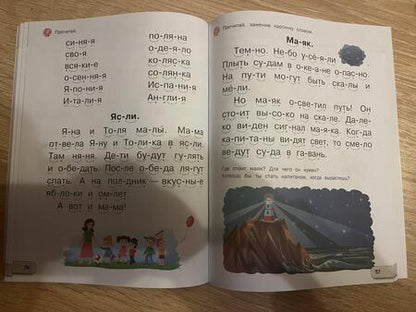 Прочитай.
си-ня-я
сво-я
вся-ки-е
о-сен-ня-я
Я-по-ни-я
И-та-ли-я
по-ля-на
о-де-я-ло
ко-ляс-ка
со-лян-ка
Ис-па-ни-я
Ан-гли-я
Яс-ли.
Я-на и То-ля ма-лы. Ма-ма
от-ве-ла Я-ну и То-ли-ка в яс-ли.
Там ня-ня. Де-ти бу-дут гу-лять
и о-бе-дать. Пос-ле о-бе-да ля-гут
спать. А на пол-дник — вкус-ны-е
яб-ло-ки и ом-лет.
А вот и ма-ма!
Прочитай, заменяя картинку словом.
Ма-як.
Тем-но. Не-бо у-се-я-ли
Плыть су-дам в о-ке-а-не о-пас-но.
На пу-ти мо-гут быть ска-лы и
ме-ли.
Но ма-як о-све-тил путь! Он
сто-ит вы-со-ко на ска-ле. Дале-
ко ви-ден сиг-нал ма-я-ка. Ког-да
ка-пи-та-ны ви-дят свет, то сме-ло
ве-дут су-да в га-вань.
Где стоит маяк? Для чего он нужен?
Хотел(а) бы ты стать капитаном, когда вырастешь?
97